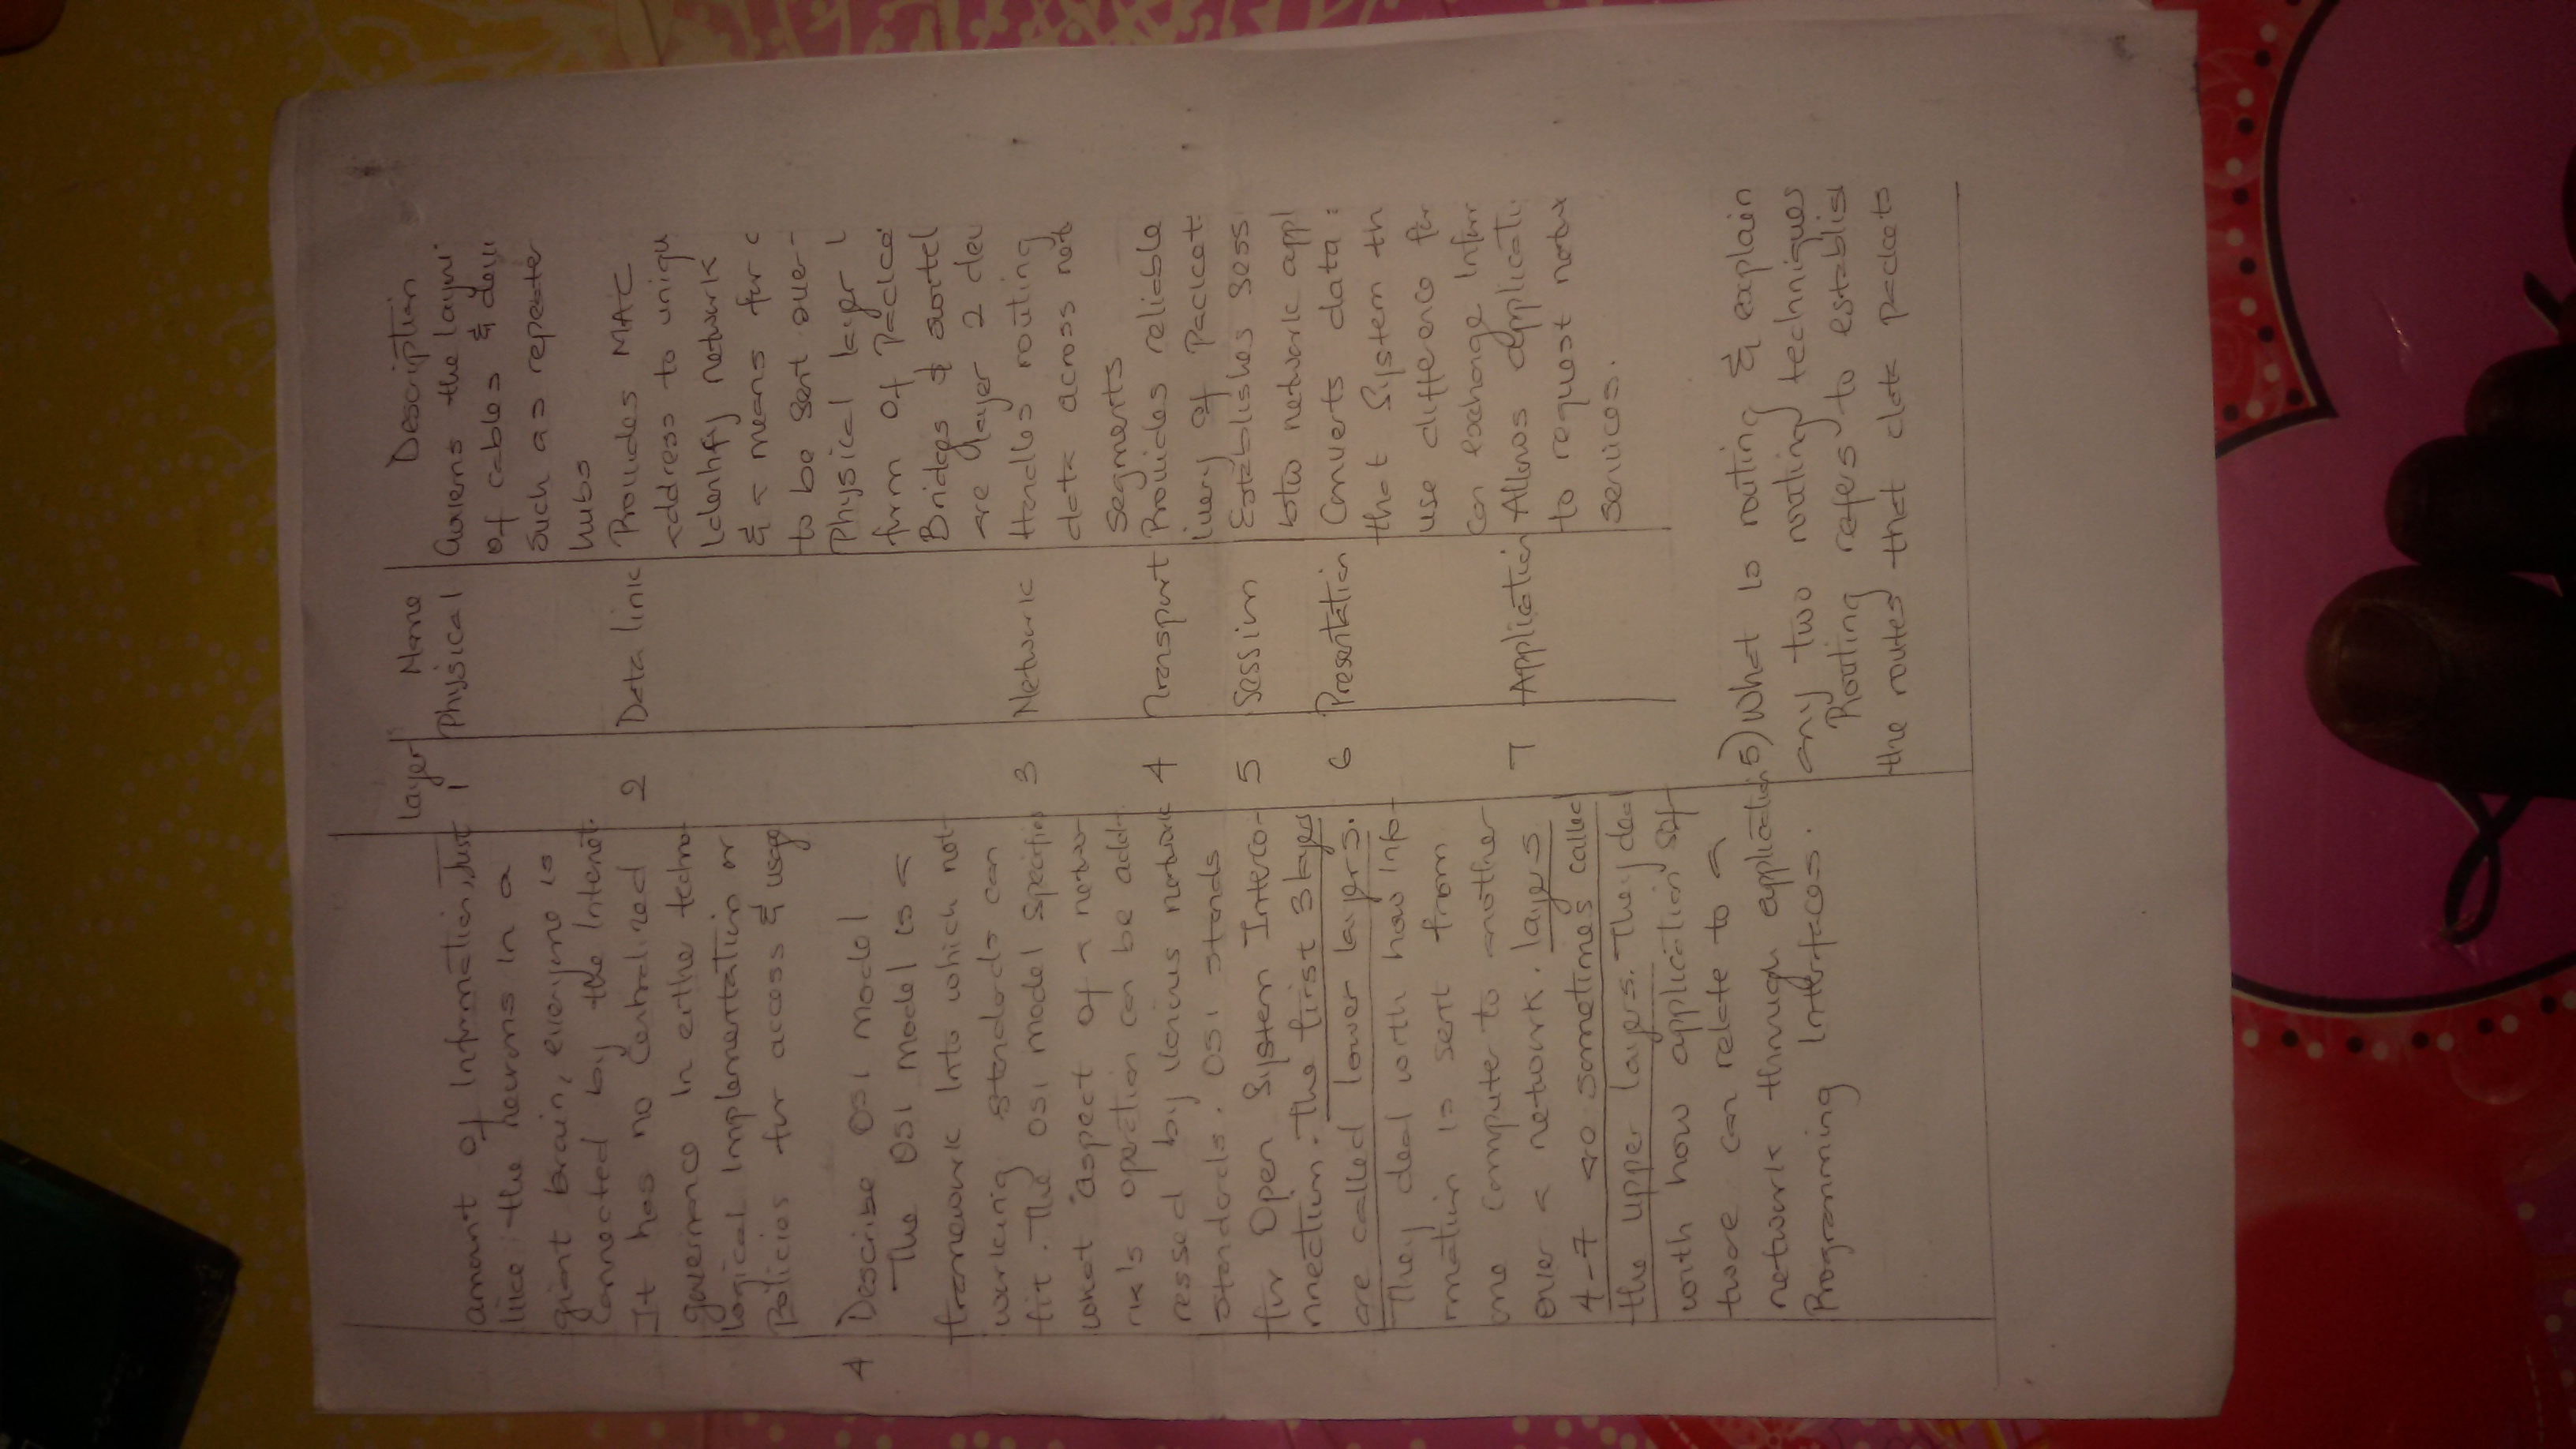 amount of Information, Just
like the neurons in a
giant brain, everyone is
Connected by the Internet.
It has no Centralized
governance in eithe techno-
logical Implementation or
Policies for access & usage
4 Describe OSI model
The OSI model is a
framework Into which net-
working standards can
fit. The OSI model Specifies
what aspect of a netwo-
rk's operation can be add-
ressed by various network
standards. OSI stands
for Open System Interco-
nnection. The first 3 layers
are called lower layers.
They deal with how Info-
rmation is sent from
one computer to another
over a network. layers
4-7 are sometimes called
the upper layers. They deal
with how application sof-
tware can relate to a
network through application
Programming Interfaces.
Layer Name Description
1 Physical Governs the layou
of cables & devi
Such as repeater
hubs
2 Data link Provides MAC
address to uniqu
Identify network
& a means for
to be sent over
Physical layer
form of Packe
Bridges &
are layer 2 dev
3 Network Handles routing
data across net
segments
4 Transport Provides reliable
livery of Packet
5 Session Establishes Sess
btw network appl
6 Presentation Converts data
that System th
use difference for
can exchange Infor
7 Application Allows applicati
to request netw
services.
5) What is routing & explain
any two routing techniques
Routing refers to establis
the routes that data packets